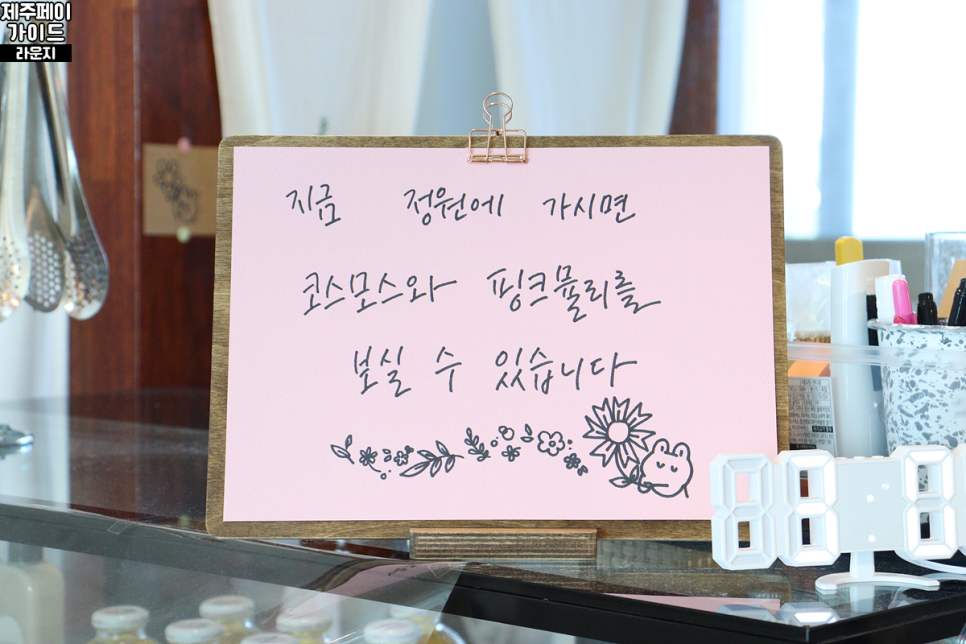 제주페이
가이드
라운지
지금 정원에 가시면
코스모스와 핑크뮬리를
보실 수 있습니다